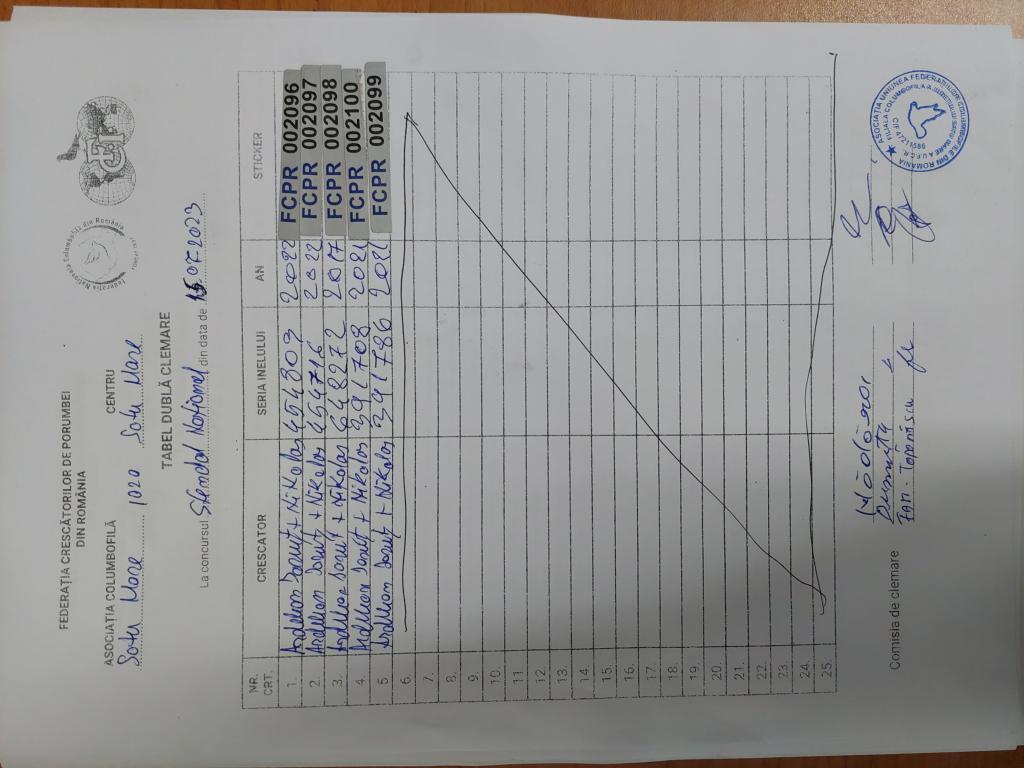 FEDERAȚIA CRESCĂTORILOR DE PORUMBEI
DIN ROMÂNIA
Federația Națională Columbofilă din România
ASOCIAȚIA COLUMBOFILĂ CENTRU
Satu Mare 1020 Satu Mare
TABEL DUBLĂ CLEMARE
La concursul Național din data de 15.07.2023
NR. CRT. CRESCATOR SERIA INELULUI AN STICKER
1. Ardelean Ionuț + Nikolas 454809 2022 FCPR 002096
2. Ardelean Ionuț + Nikolas 454716 2022 FCPR 002097
3. Ardelean Ionuț + Nikolas 648272 2017 FCPR 002098
4. Ardelean Ionuț + Nikolas 391708 2021 FCPR 002100
5. Ardelean Ionuț + Nikolas 391786 2021 FCPR 002099
6.
7.
8.
9.
10.
11.
12.
13.
14.
15.
16.
17.
18.
19.
20.
21.
22.
23.
24.
25.
Comisia de clemare
ASOCIAȚIA UNIUNEA FEDERAȚIILOR COLUMBOFILE DIN ROMÂNIA
FILIALA COLUMBOFILĂ A JUDEȚULUI SATU MARE A.U.F.C.R.
CIF 47211586